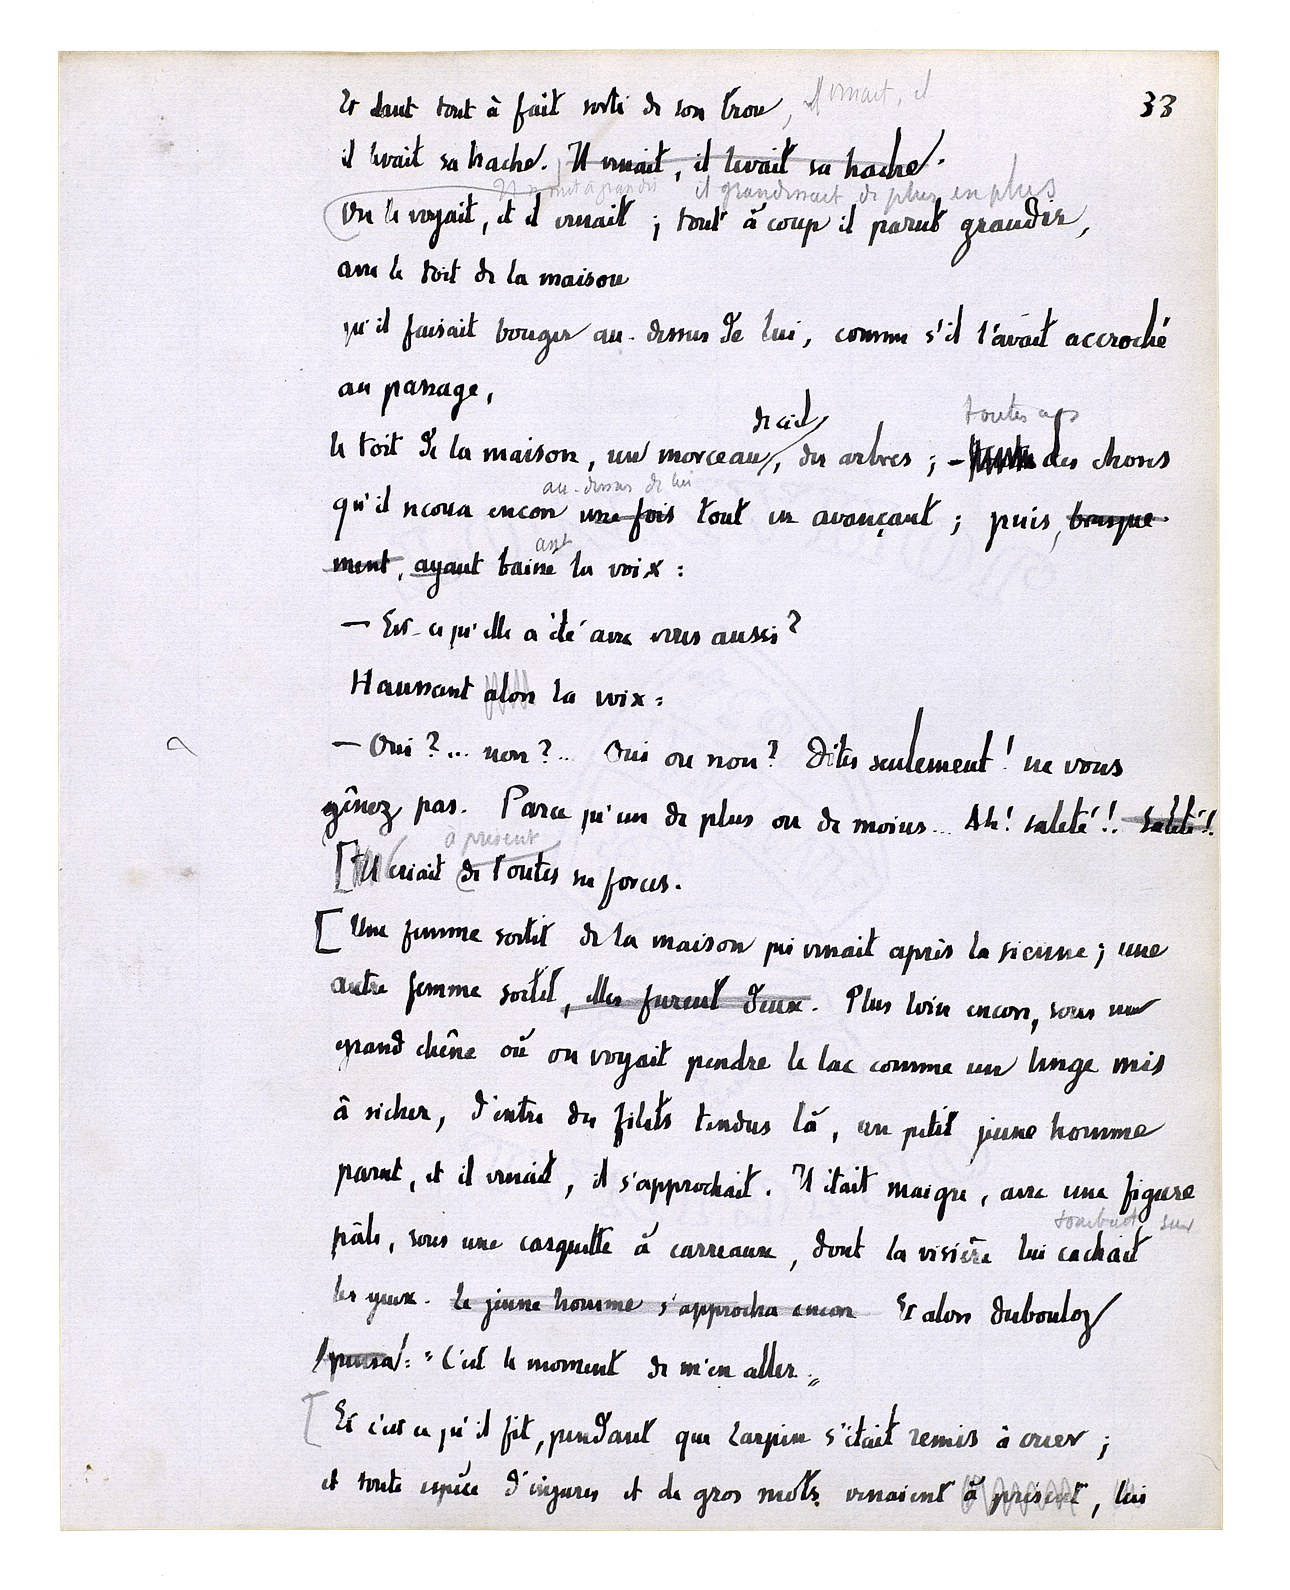 Et étant tout à fait sorti de son trou, Il venait, il
33
il levait sa hache. Il venait, il levait sa hache.
Il se mit à grandir il grandissait de plus en plus
On le voyait, et il venait ; tout à coup il parut grandir,
avec le toit de la maison
qu'il faisait bouger au-dessus de lui, comme s'il l'avait accroché
au passage,
de ciel, toutes ces
le toit de la maison, un morceau, des arbres ; – des choses
au-dessus de lui
qu'il secoua encore une fois tout en avançant ; puis, brusque-
ant
ment, ayant baissé la voix :
— Est-ce qu'elle a été avec vous aussi ?
Haussant alors la voix :
— Oui ?... non ?... Oui ou non ? Dites seulement ! ne vous
gênez pas. Parce qu'un de plus ou de moins... Ah ! saleté !! saleté !!
à présent
[Il criait de toutes ses forces.
[Une femme sortit de la maison qui venait après la sienne ; une
autre femme sortit, elles furent deux. Plus loin encore, sous un
grand chêne où on voyait pendre le lac comme un linge mis
à sécher, d'entre des filets tendus là, un petit jeune homme
parut, et il venait, il s'approchait. Il était maigre, avec une figure
tombait sur
pâle, sous une casquette à carreaux, dont la visière lui cachait
les yeux. Le jeune homme s'approcha encore Et alors Duboulоz
pensa : "C'est le moment de m'en aller."
[Et c'est ce qu'il fit, pendant que Larpin s'était remis à crier ;
et toute espèce d'injures et de gros mots venaient à présent, lui